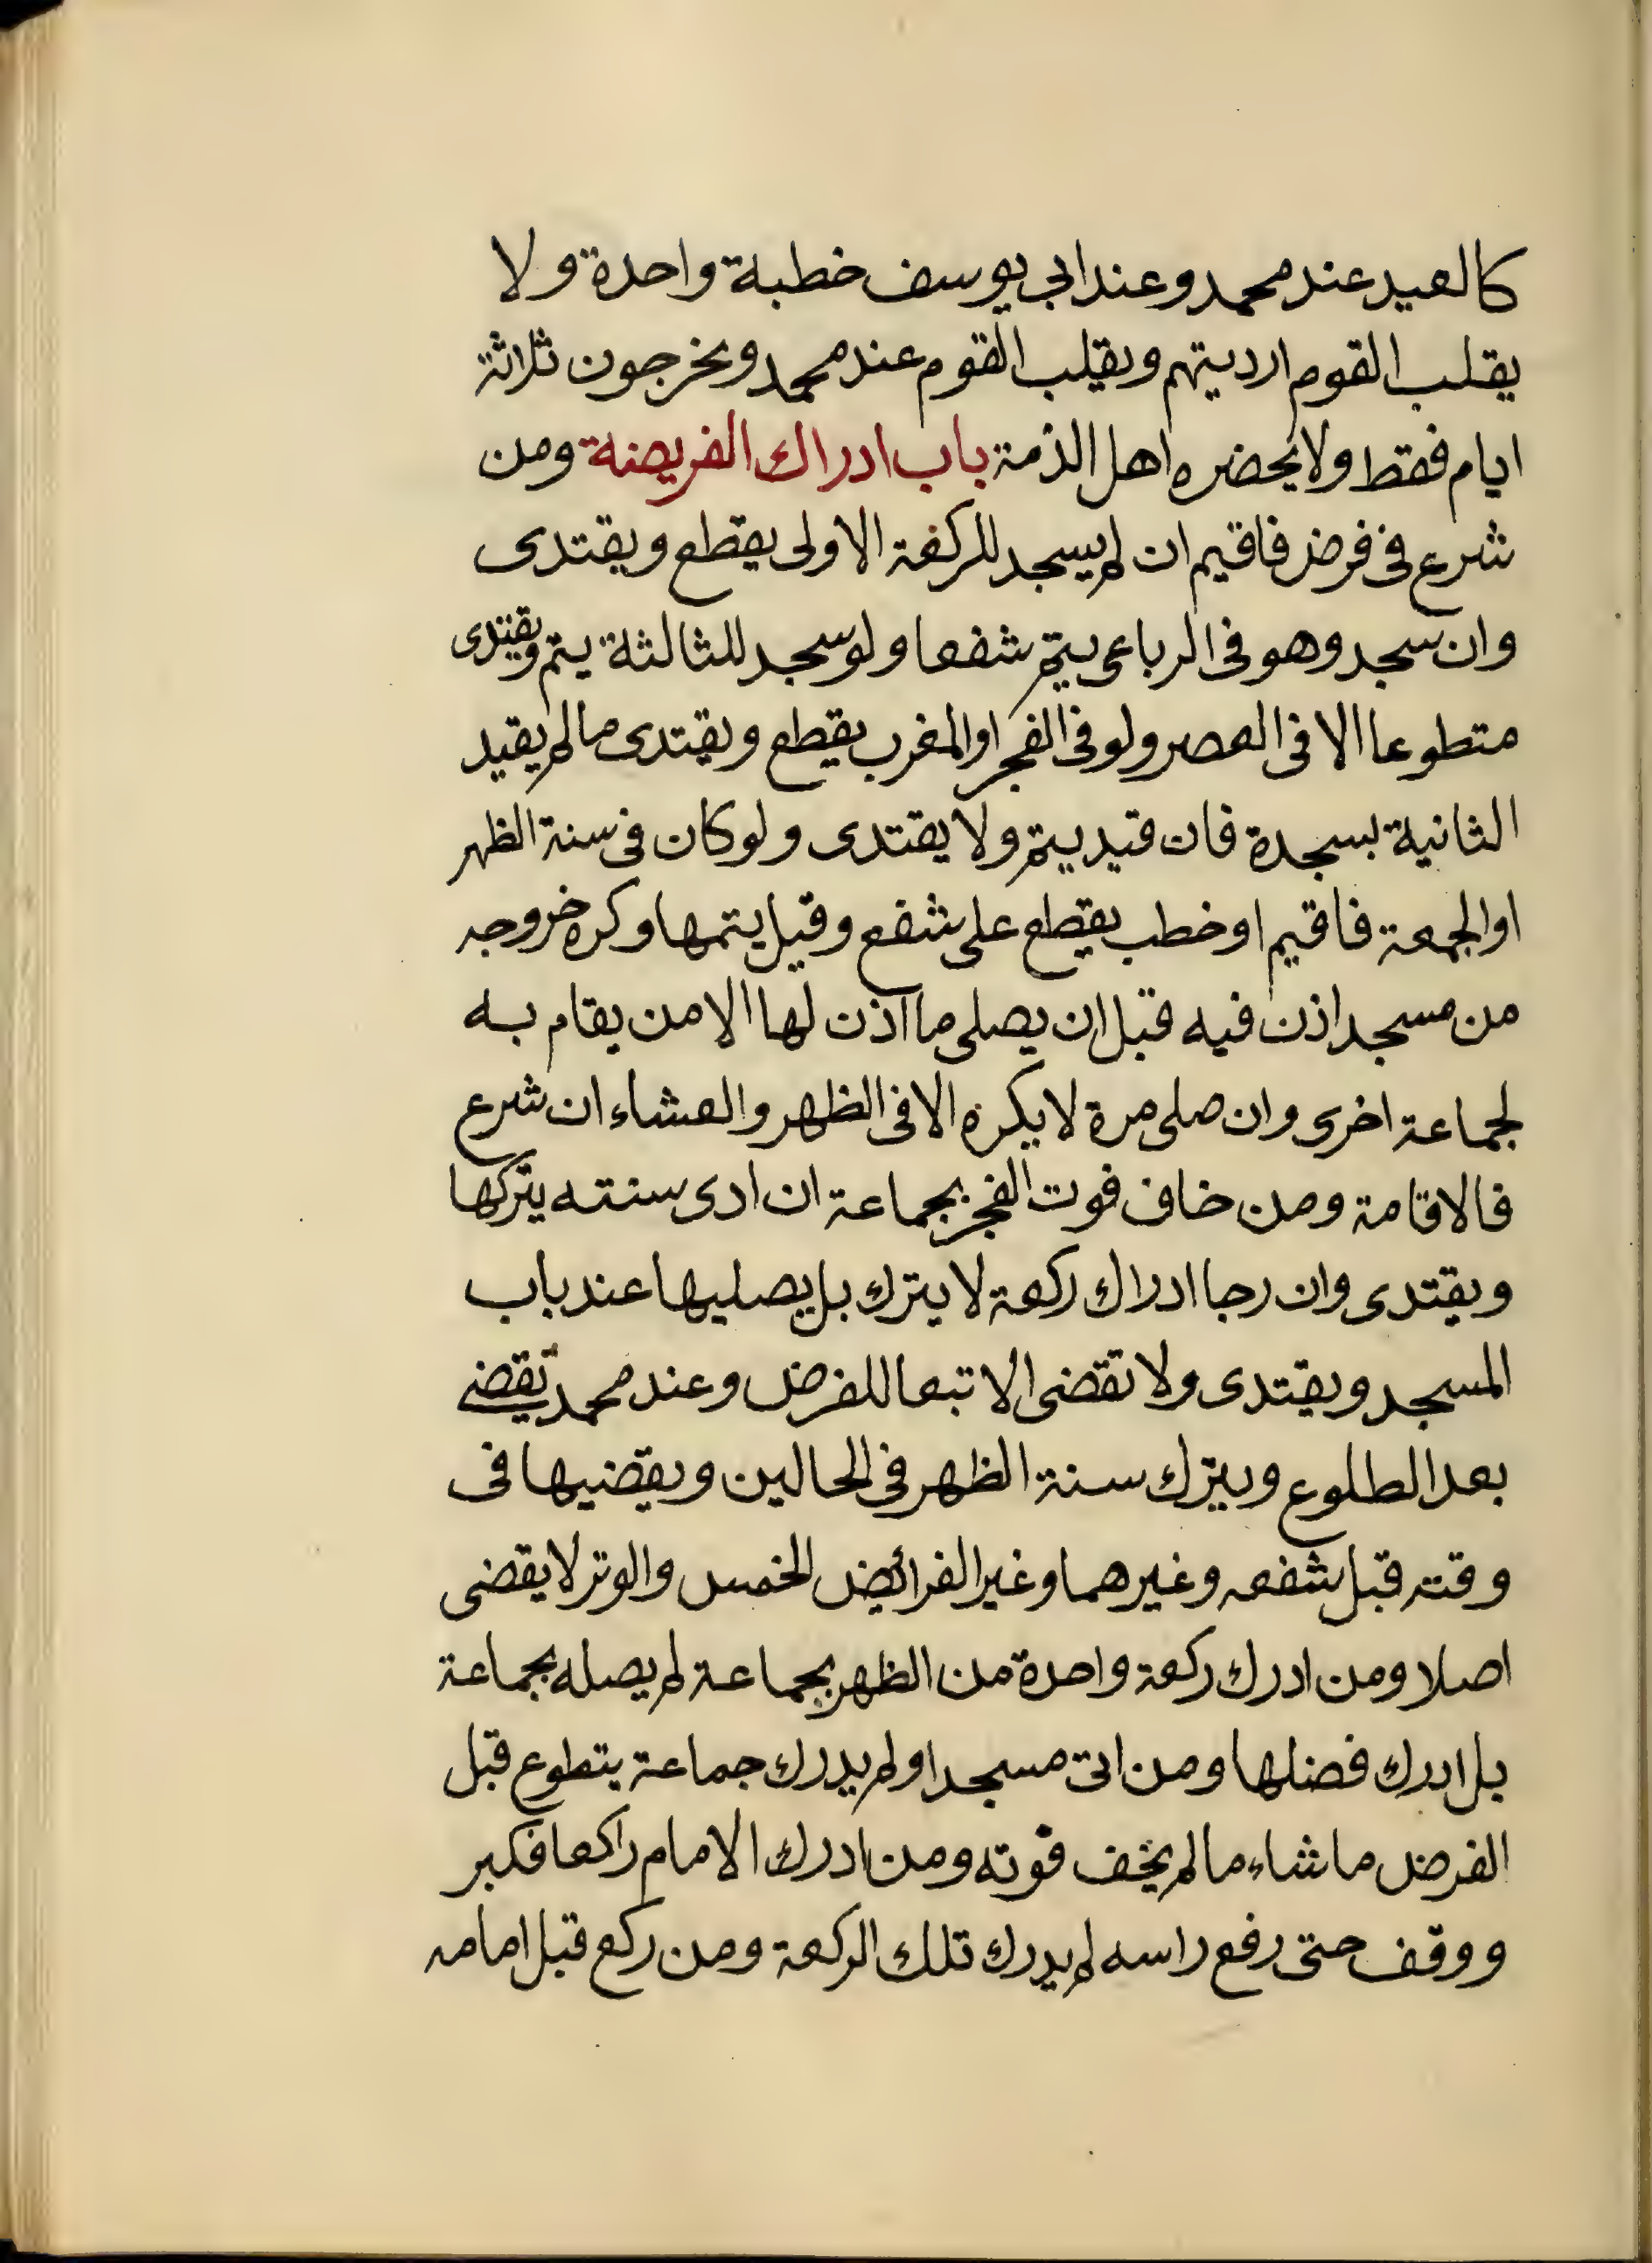 كالعيد عند محمد وعند ابي يوسف خطبة واحدة ولا
يقلب القوم ارديتهم ويقلب القوم عند محمد ويخرجون ثلاثة
ايام فقط ولا يحضره اهل الذمة باب ادراك الفريضة ومن
شرع في فرض فاقيم ان لم يسجد للركعة الاولى يقطع ويقتدى
وان سجد وهو في الرباعي يتم شفعا ولو سجد للثالثة يتم ويقتدى
متطوعا الا في العصر ولو في الفجر او المغرب يقطع ويقتدى ما لم يقيد
الثانية بسجدة فان قيد يتم ولا يقتدى ولو كان في سنة الظهر
او الجمعة فاقيم او خطب يقطع على شفع وقيل يتمها وكره خروجه
من مسجد اذن فيه قبل ان يصلى ما اذن لها الا من يقام به
لجماعة اخرى وان صلى مرة لا يكره الا في الظهر والعشاء ان شرع
فالاقامة ومن خاف فوت الفجر بجماعة ان ادى سنته يتركها
ويقتدى وان رجا ادراك ركعة لا يترك بل يصليها عند باب
المسجد ويقتدى ولا تقضى الا تبعا للفرض وعند محمد تقضى
بعد الطلوع ويترك سنة الظهر في الحالين ويقضيها في
وقته قبل شفعه وغيرهما وغير الفرائض الخمس والوتر لا يقضى
اصلا ومن ادرك ركعة واحدة من الظهر بجماعة لم يصله بجماعة
بل ادرك فضلها ومن اتى مسجدا ولم يدرك جماعة يتطوع قبل
الفرض ما شاء ما لم يخف فوته ومن ادرك الامام راكعا فكبر
ووقف حتى رفع راسه لم يدرك تلك الركعة ومن ركع قبل امامه